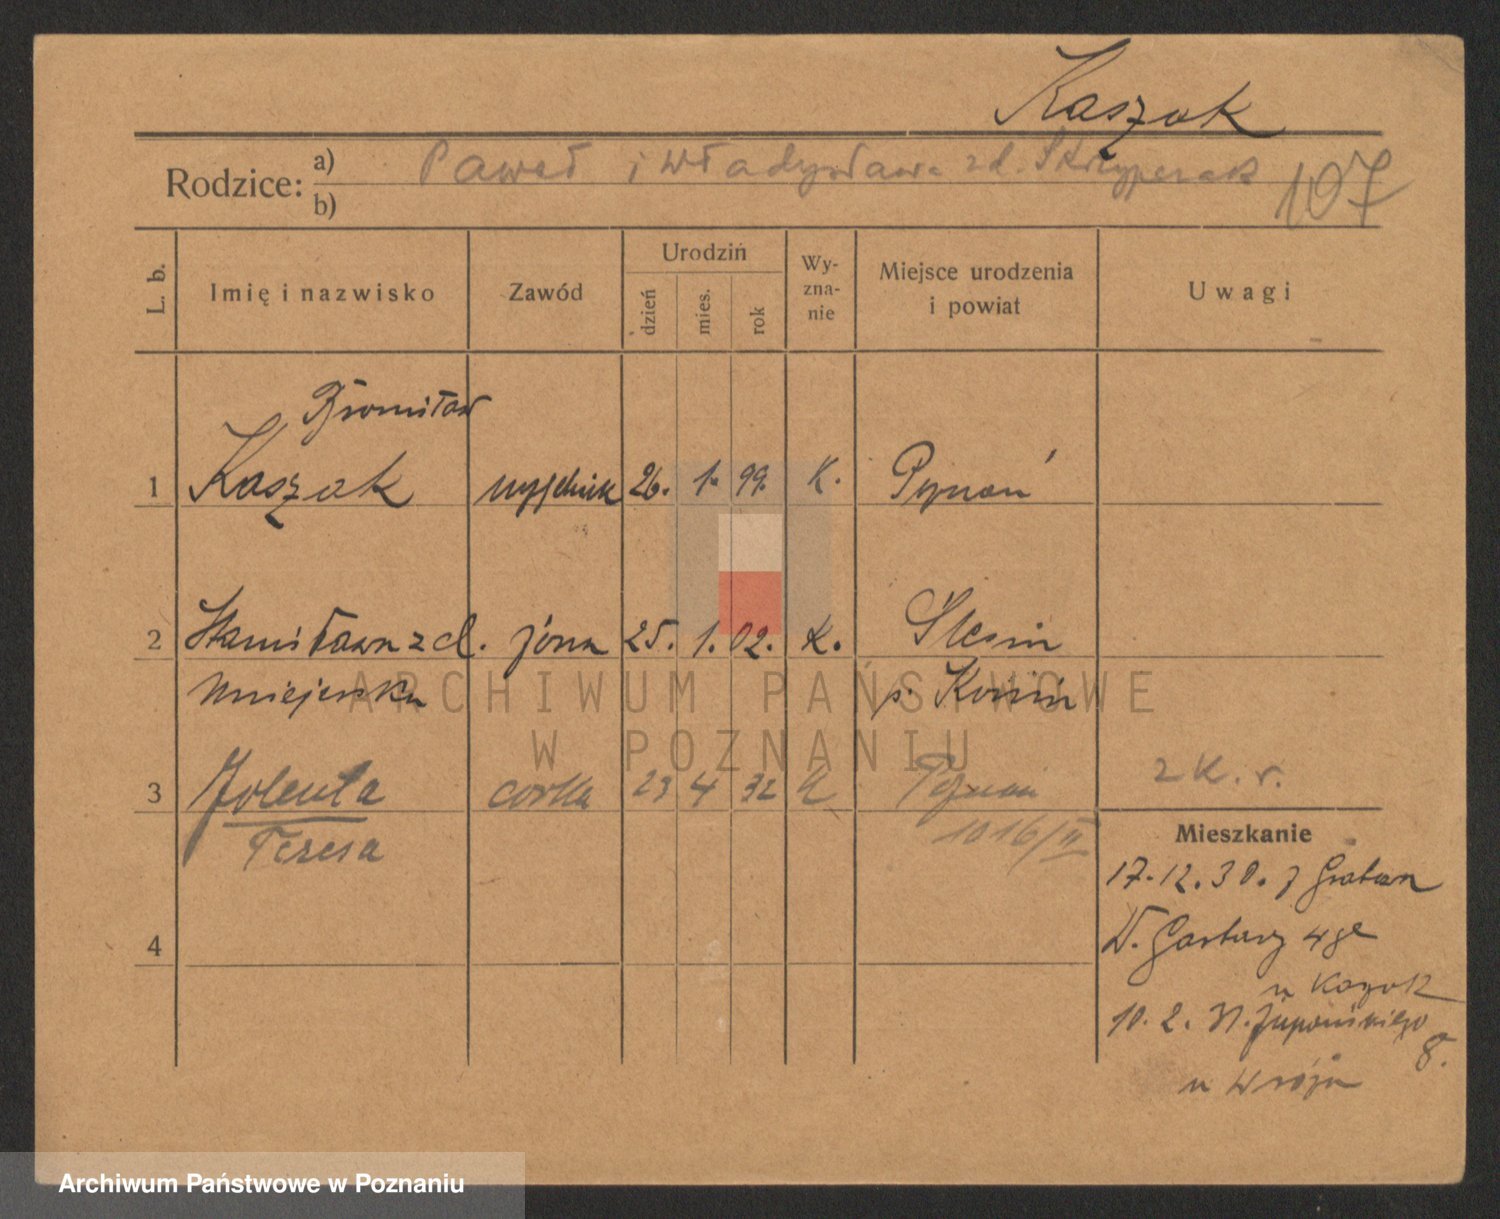 Kaszak
Rodzice: a) Paweł i Władysława zd. Skrzypczak
b)
107
L. b.
Imię i nazwisko
Zawód
Urodziń
dzień
mies.
rok
Wy-
zna-
nie
Miejsce urodzenia
i powiat
Uwagi
Bronisław
1 Kaszak 26. 1. 99. K. Poznań
2 Stanisława z d. żona 25. 1. 02. K. Ślesin
p. Konin
3 Jolenta córka 23 4 32 K Poznań 2 K. r.
Teresa
1016/II
Mieszkanie
17.12.30. z
W. Garbary
u Kaszak
10. 2. 31. Żupańskiego
8.
u
4
ARCHIWUM PAŃSTWOWE
W POZNANIU
Archiwum Państwowe w Poznaniu